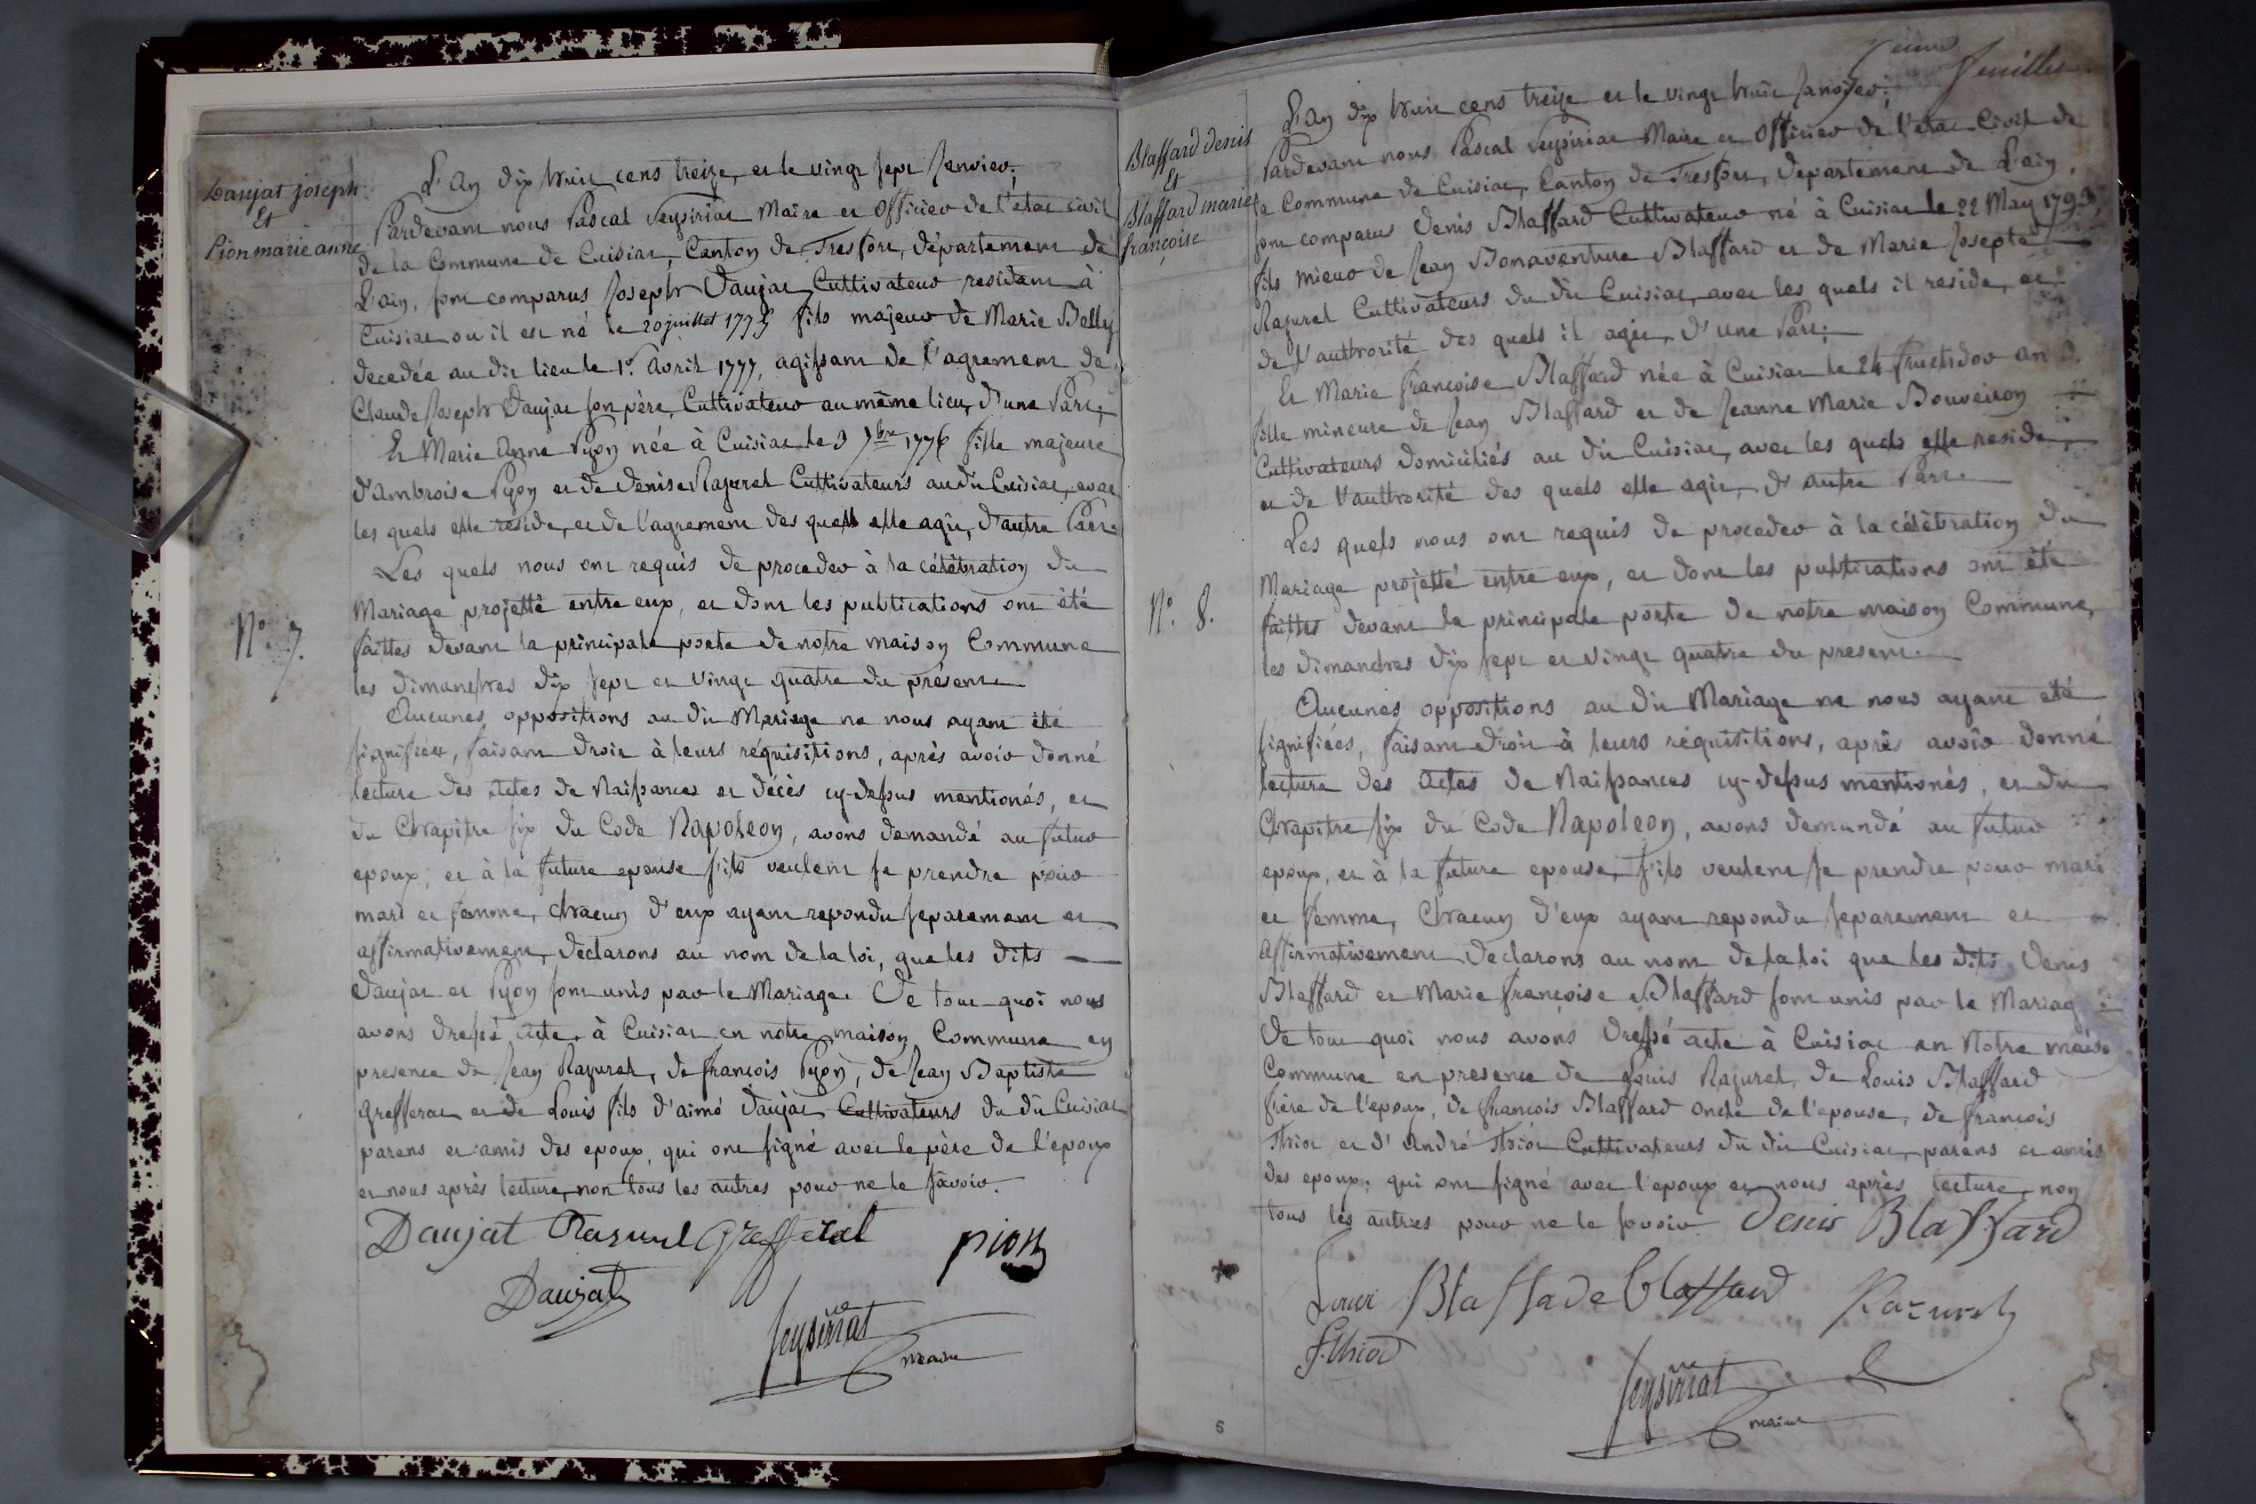 Daujat joseph
Et
Pion marie anne
N.° 7.
L'an dix huit cens treize, et le vingt sept Janvier,
Pardevant nous Pascal Seysiriat Maire et Officier de l'etat civil
de la Commune de Cuisiat, Canton de Treffort, département de
L'ain, sont comparus Joseph Daujat Cultivateur residant à
Cuisiat ou il est né le 20 juillet 1775 fils majeur de Marie Belly
decedée au dit lieu le 1.er avril 1777, agissant de l'agrement de
Claude Joseph Daujat son père, Cultivateur au même lieu, d'une Part;
Et Marie Anne Pyon née à Cuisiat le 3 7bre 1776 fille majeure
d'ambroise Pyon et de denise Razurel Cultivateurs au dit Cuisiat, avec
les quels elle reside, et de l'agrement des quels elle agit, d'autre Part.
Les quels nous ont requis de proceder à la célébration du
Mariage projetté entre eux, et dont les publications ont été
faittes devant la principale porte de notre maison Commune
les dimanches dix sept et vingt quatre du présent
Aucunes oppositions au dit Mariage ne nous ayant été
signifiées, faisant droit à leurs réquisitions, après avoir donné
lecture des Actes de Naissances et décès cy-dessus mentionés, et
du Chapitre six du Code Napoleon, avons demandé au futur
epoux, et à la future epouse s'ils veulent se prendre pour
mari et femme, chacun d'eux ayant repondu separement et
affirmativement, declarons au nom de la loi, que les dits
Daujat et Pyon sont unis par le Mariage. De tout quoi nous
avons dressé acte à Cuisiat en notre maison Commune en
presence de Jean Razurel, de francois Pyon, de Jean Baptiste
Grefferat et de Louis fils d'aimé Daujat Cultivateurs du dit Cuisiat
parens et amis des epoux, qui ont signé avec le père de l'epoux
et nous après lecture, non tous les autres pour ne le savoir.
Daujat Razurel Grefferat pion
Daujat
Seysiriat
maire
feuillet
Blaffard denis
Et
Blaffard marie
françoise
N.° 8.
L'an dix huit cens treize et le vingt huit Janvier,
Pardevant nous Pascal Seysiriat Maire et Officier de l'etat Civil de
la Commune de Cuisiat, Canton de Treffort, departement de L'ain,
sont comparus Denis Blaffard Cultivateur né à Cuisiat le 22 May 1793,
fils mieur de Jean Bonaventure Blaffard et de Marie Josepte
Razurel Cultivateurs du dit Cuisiat, avec les quels il reside, et
de l'authorité des quels il agit, d'une Part;
Et Marie francoise Blaffard née à Cuisiat le 24 fructidor an 3.
fille mineure de Jean Blaffard et de Jeanne Marie Bouveiron
Cultivateurs domiciliés au dit Cuisiat, avec les quels elle reside,
et de l'authorité des quels elle agit, d'autre Part.
Les quels nous ont requis de proceder à la célébration du
Mariage projetté entre eux, et dont les publications ont été
faittes devant la principale porte de notre maison Commune,
les dimanches dix sept et vingt quatre du present.
Aucunes oppositions au dit Mariage ne nous ayant été
signifiées, faisant droit à leurs réquisitions, après avoir donné
lecture des actes de Naissances cy-dessus mentionés, et du
Chapitre six du Code Napoleon, avons demandé au futur
epoux, et à la future epouse, s'ils veulent se prendre pour mari
et femme, Chacun d'eux ayant repondu separement et
affirmativement declarons au nom de la loi que les dits Denis
Blaffard et Marie francoise Blaffard sont unis par le Mariag
De tout quoi nous avons dressé acte à Cuisiat en Notre maiso
Commune en presence de Louis Razurel, de Louis Blaffard
frère de l'epoux, de francois Blaffard oncle de l'epouse, de francois
Thior et d'André Thior Cultivateurs du dit Cuisiat, parens et amis
des epoux, qui ont signé avec l'epoux et nous après lecture, non
tous les autres pour ne le savoir. Denis Blaffard
Louis Blaffade blaffard Razurel
f. thior
Seysiriat
maire
5